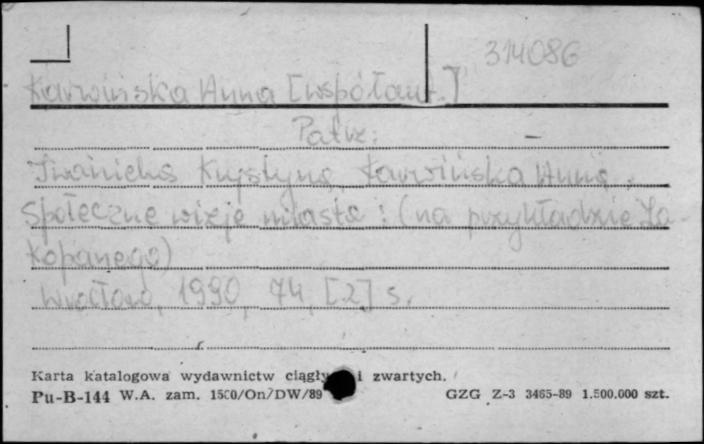 314086
Karwińska Anna [współaut.]
Patrz:
Iwanicka Krystyna, Karwińska Anna,
Społeczne wizje miasta : (na przykładzie Za-
kopanego)
Wrocław, 1990, 74, [2] s.
Karta katalogowa wydawnictw ciągły i zwartych.
Pu-B-144 W.A. zam. 1500/On/DW/89 GZG Z-3 3465-89 1.500.000 szt.